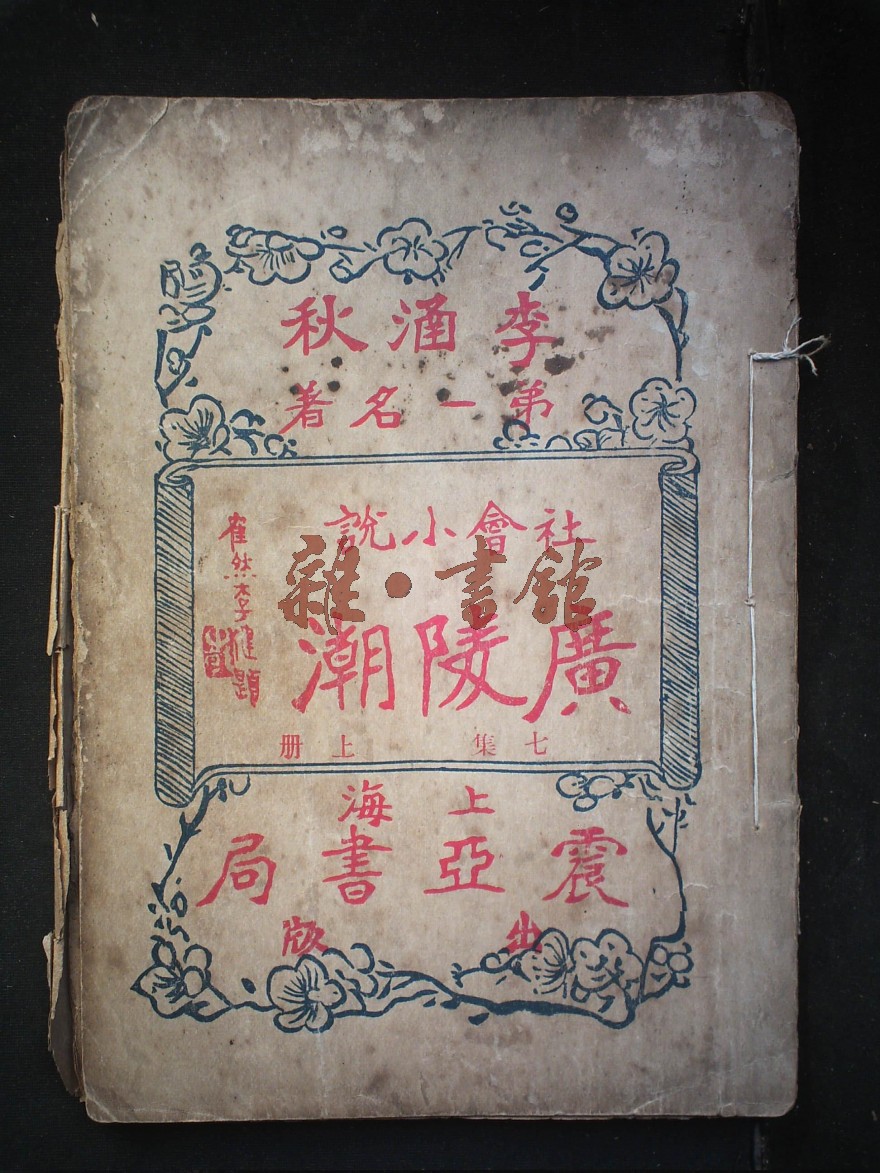 李涵秋
第一名著
社會小說
廣陵潮
七集 上册
上海
震亞書局
出版
雜·書館